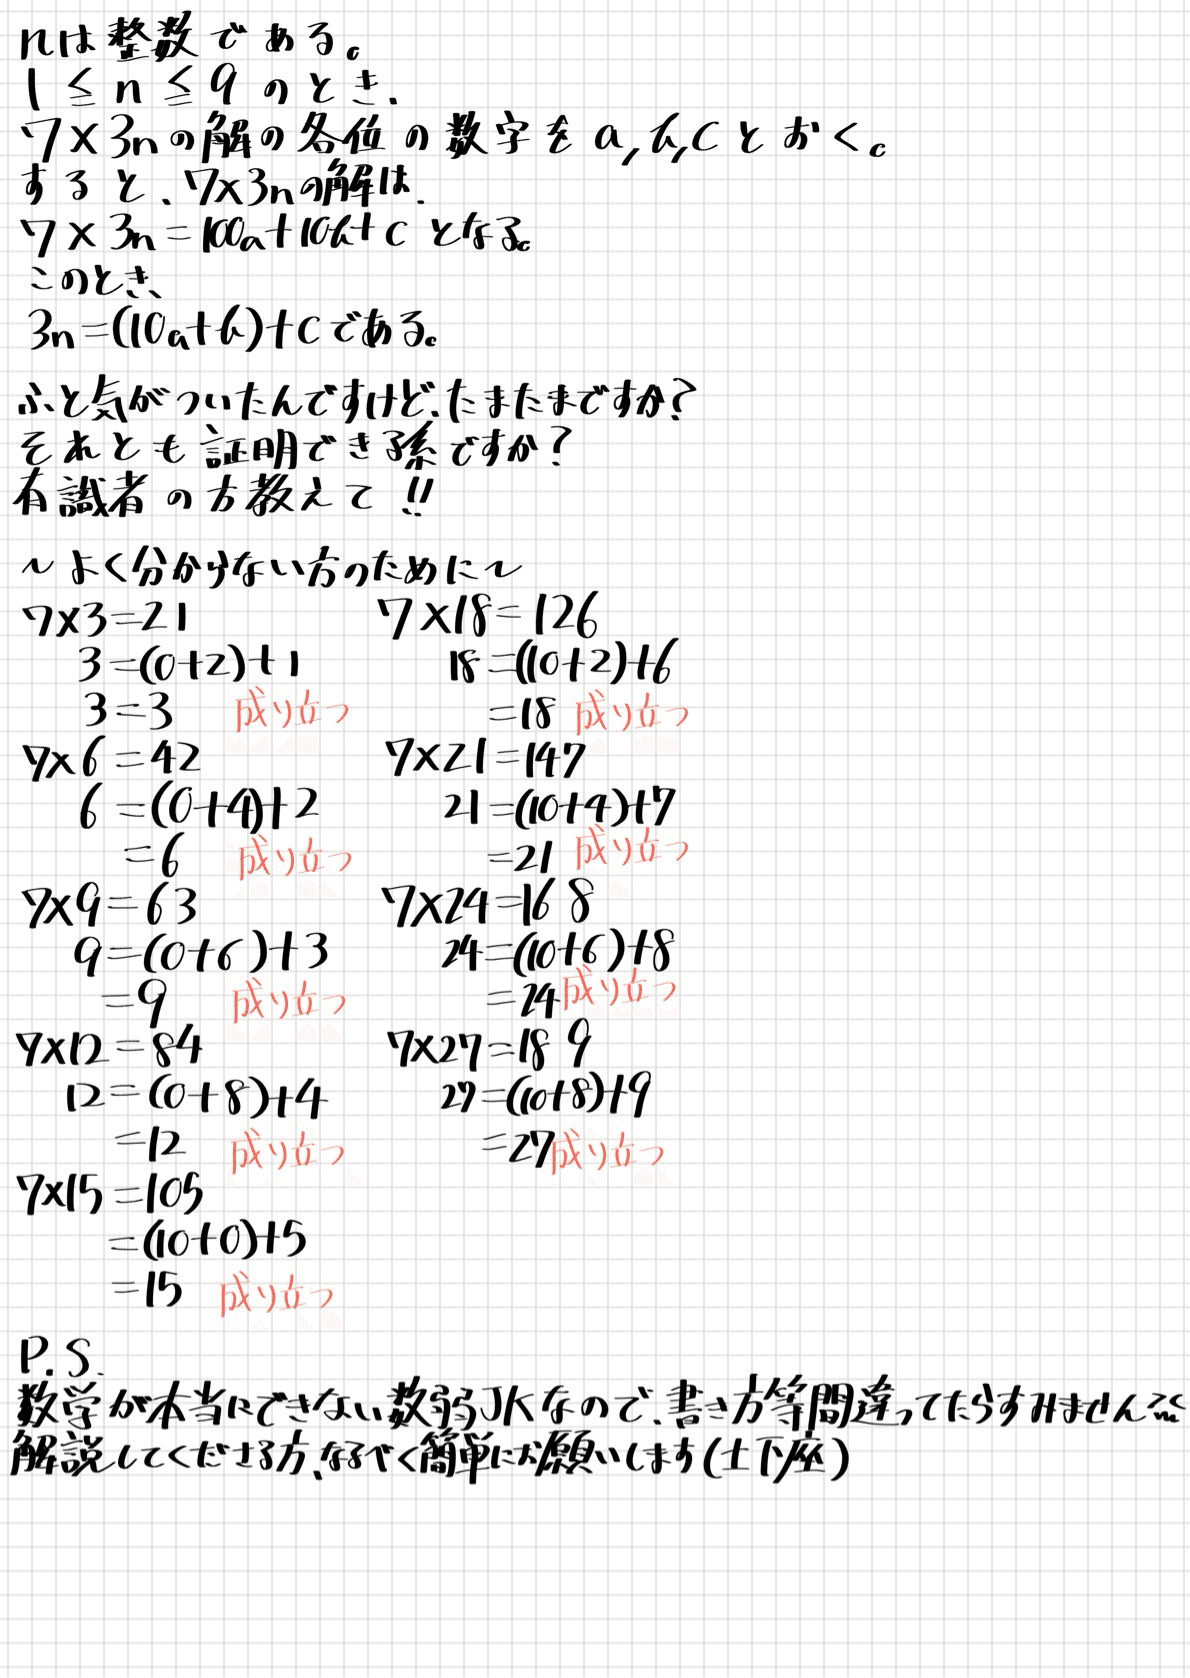 nは整数である。
1≦n≦9のとき、
7×3nの解の各位の数字をa,b,cとおく。
すると、7×3nの解は、
7×3n=100a+10b+cとなる。
このとき、
3n=(10a+b)+cである。
ふと気がついたんですけど、たまたまですか?
それとも証明できる系ですか?
有識者の方教えて!!
~よく分からない方のために~
7×3=21
3=(0+2)+1
3=3 成り立つ
7×6=42
6=(0+4)+2
=6 成り立つ
7×9=63
9=(0+6)+3
=9 成り立つ
7×12=84
12=(0+8)+4
=12 成り立つ
7×15=105
=(10+0)+5
=15 成り立つ
7×18=126
18=(10+2)+6
=18 成り立つ
7×21=147
21=(10+4)+7
=21 成り立つ
7×24=168
24=(10+6)+8
=24 成り立つ
7×27=189
27=(10+8)+9
=27 成り立つ
P.S.
数学が本当にできない数弱JKなので、書き方等間違ってたらすみません
解説してくださる方、なるべく簡単にお願いします(土下座)